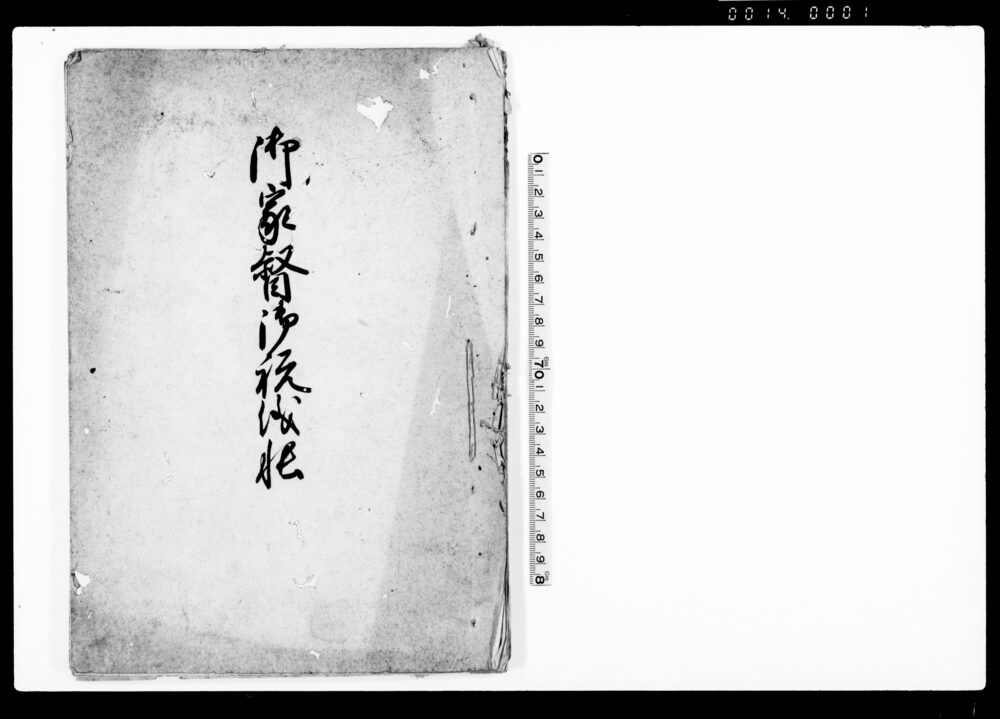 0014. 0001
御家督御祝儀帳
0 1 2 3 4 5 6 7 8 9 10 1 2 3 4 5 6 7 8 9